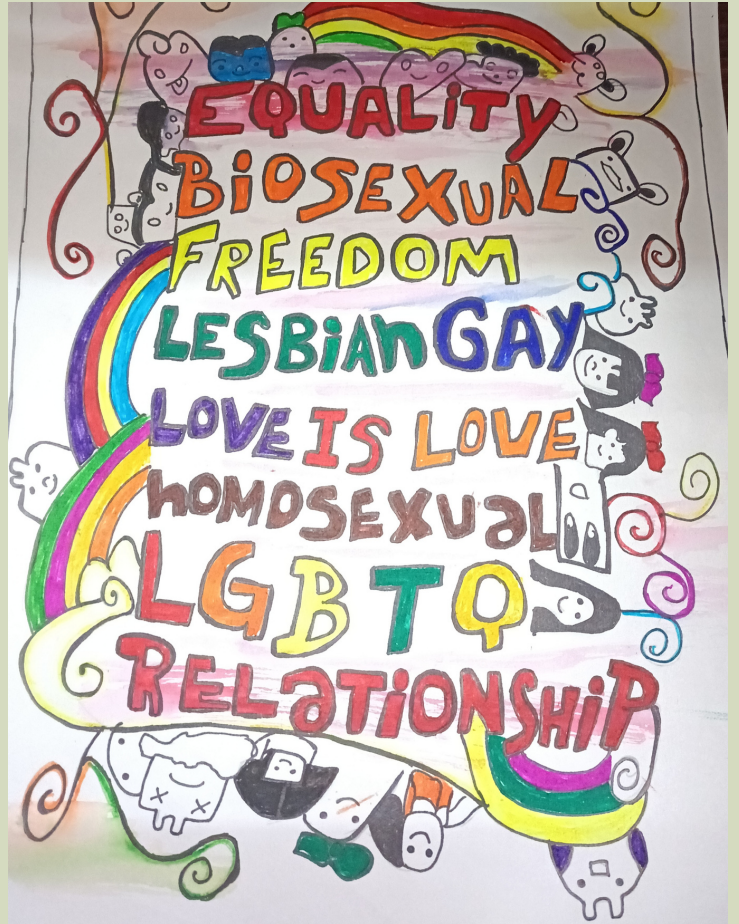 EQUALITY
BiOSEXUAL
FREEDOM
LESBiAn GAY
LOVE IS LOVE
hOMOSEXUaL
LGBTQ
RELaTiONSHiP